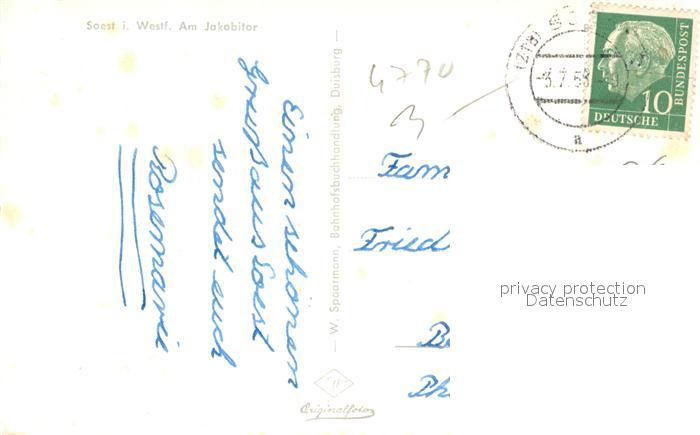 Soest i. Westf. Am Jakobitor
Einen schönen
Gruß aus Soest
sendet euch
Rosemarie
— W. Spaarmann, Bahnhofsbuchhandlung, Duisburg —
Originalfoto
4770
-3.7.58
a
10
DEUTSCHE
BUNDESPOST
Fam
Fried
privacy protection
Datenschutz